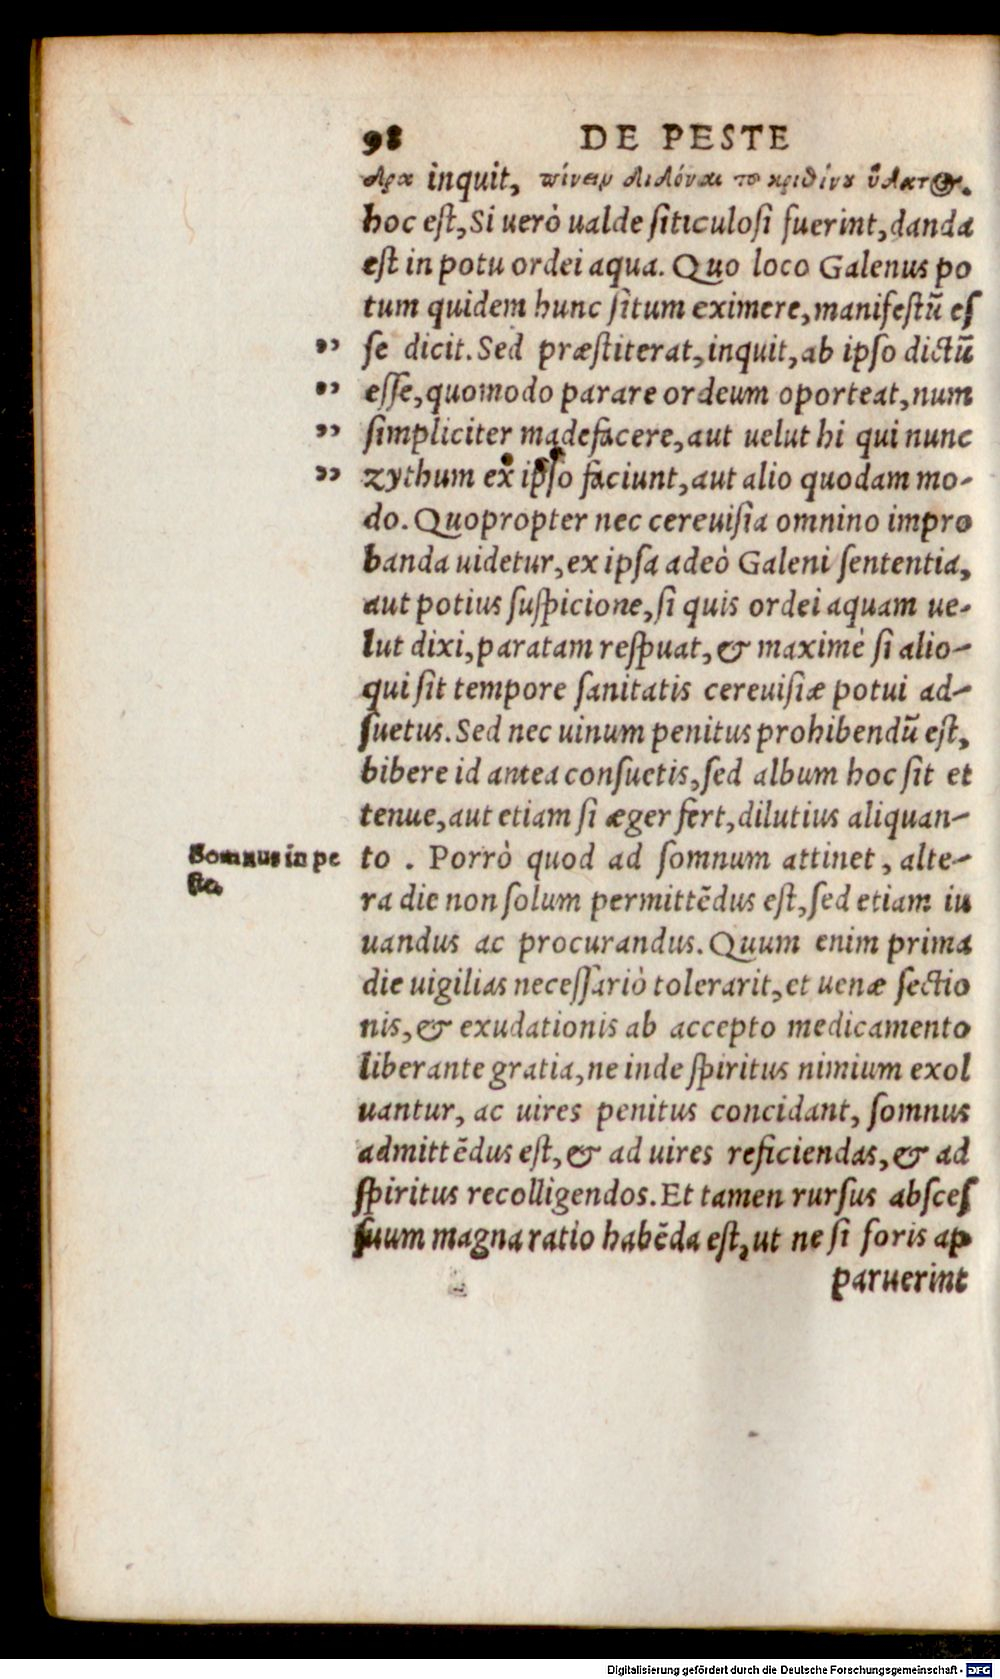 98 DE PESTE
δρα inquit, πίνειν διδόναι το κριθίνου ὕδατος.
hoc est, Si uerò ualde siticulosi fuerint, danda
est in potu ordei aqua. Quo loco Galenus po
tum quidem hunc situm eximere, manifestū es
se dicit. Sed præstiterat, inquit, ab ipso dictū
esse, quomodo parare ordeum oporteat, num
simpliciter madefacere, aut uelut hi qui nunc
zythum ex ipso faciunt, aut alio quodam mo-
do. Quopropter nec cereuisia omnino impro
banda uidetur, ex ipsa adeò Galeni sententia,
aut potius suspicione, si quis ordei aquam ue-
lut dixi, paratam respuat, & maximè si alio-
qui sit tempore sanitatis cereuisiæ potui ad-
suetus. Sed nec uinum penitus prohibendū est,
bibere id antea consuetis, sed album hoc sit et
tenue, aut etiam si æger fert, dilutius aliquan-
Somnus in pe
ste.
to . Porrò quod ad somnum attinet, alte-
ra die non solum permittēdus est, sed etiam iu
uandus ac procurandus. Quum enim prima
die uigilias necessariò tolerarit, et uenæ sectio
nis, & exudationis ab accepto medicamento
liberante gratia, ne inde spiritus nimium exol
uantur, ac uires penitus concidant, somnus
admittēdus est, & ad uires reficiendas, & ad
spiritus recolligendos. Et tamen rursus absces
suum magna ratio habēda est, ut ne si foris ap
paruerint
Digitalisierung gefördert durch die Deutsche Forschungsgemeinschaft - DFG